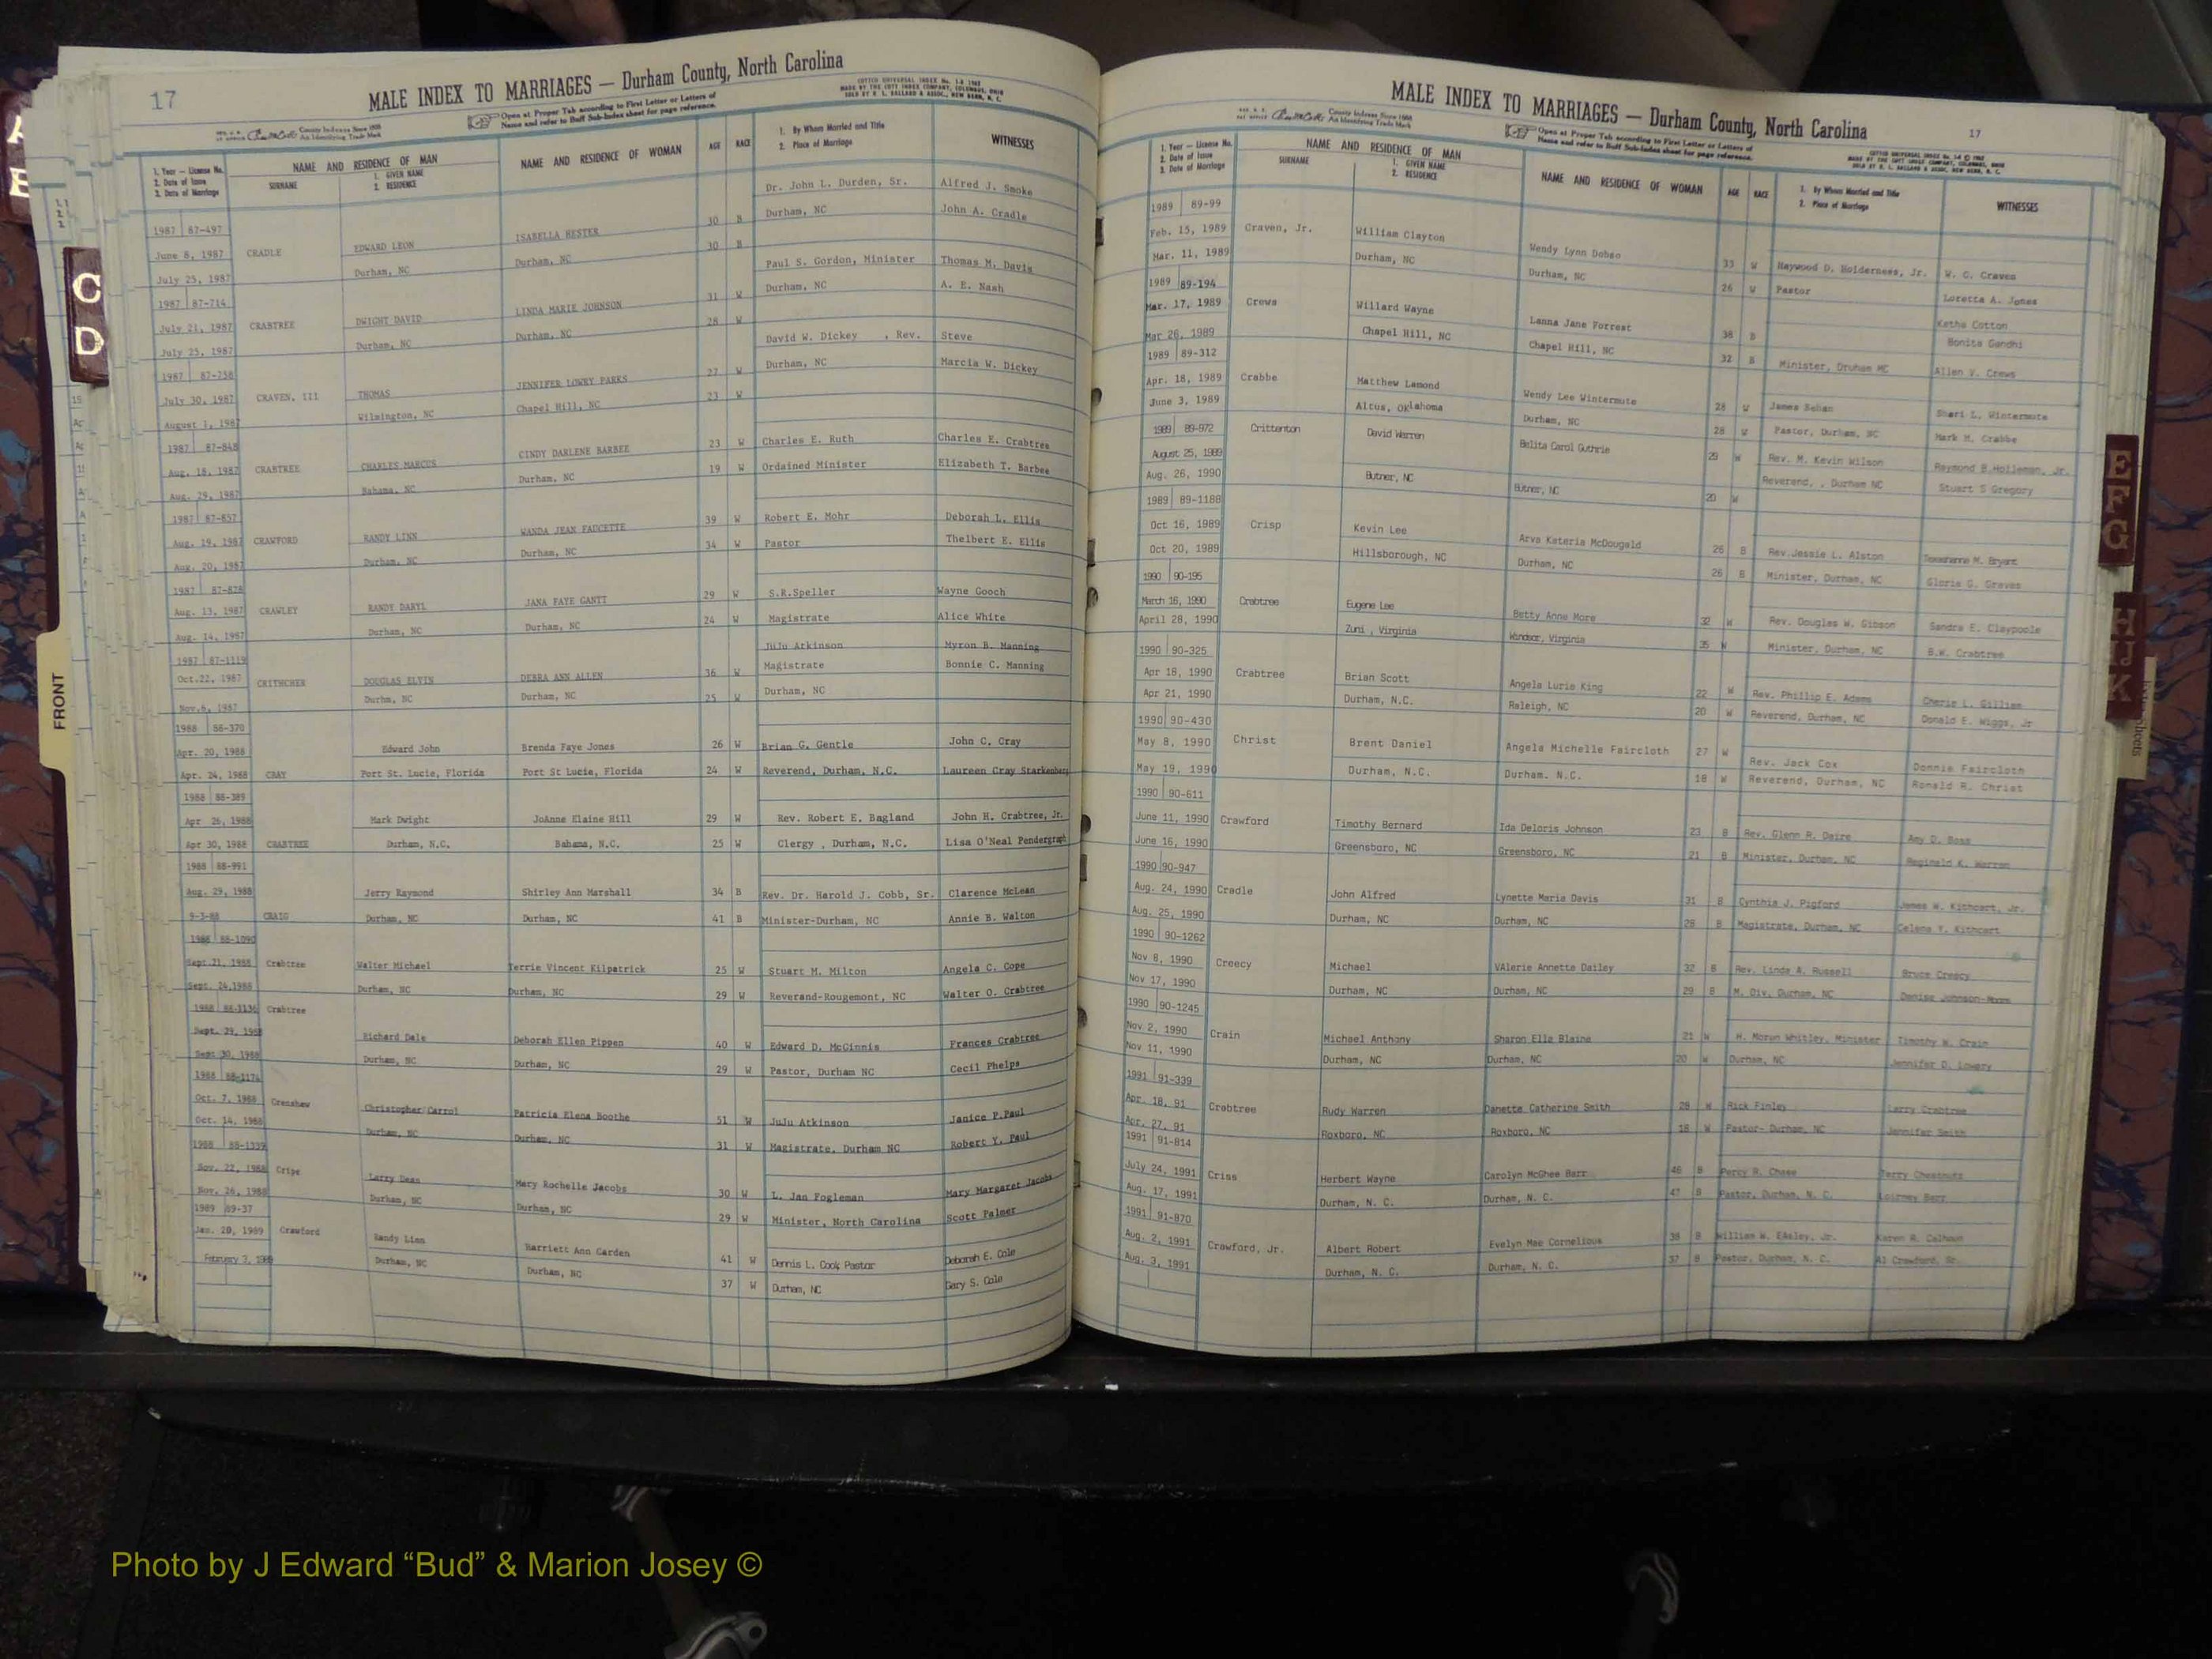 17
MALE INDEX TO MARRIAGES — Durham County, North Carolina
COTT'S UNIVERSAL INDEX No. 1-S 1962
MADE BY THE COTT INDEX COMPANY, COLUMBUS, OHIO
SOLD BY R. L. BALLARD & ASSOC., NEW BERN, N. C.
County Indexes Since 1888
An Identifying Trade Mark
Open at Proper Tab according to First Letter or Letters of
Name and refer to Buff Sub-Index sheet for page reference.
1. Year — License No.
2. Date of Issue
3. Date of Marriage
NAME AND RESIDENCE OF MAN
SURNAME
1. GIVEN NAME
2. RESIDENCE
NAME AND RESIDENCE OF WOMAN
AGE
RACE
1. By Whom Married and Title
2. Place of Marriage
WITNESSES
1987 87-497 Dr. John L. Durden, Sr. Alfred J. Smoke
June 8, 1987 CRADLE EDWARD LEON ISABELLA HESTER 30 B Durham, NC John A. Cradle
July 25, 1987 Durham, NC Durham, NC 30 B
1987 87-714 Paul S. Gordon, Minister Thomas M. Davis
July 21, 1987 CRABTREE DWIGHT DAVID LINDA MARIE JOHNSON 31 W Durham, NC A. E. Nash
July 25, 1987 Durham, NC Durham, NC 28 W
1987 87-758 David W. Dickey , Rev. Steve
July 30, 1987 CRAVEN, III THOMAS JENNIFER LOWRY PARKS 27 W Durham, NC Marcia W. Dickey
August 1, 1987 Wilmington, NC Chapel Hill, NC 23 W
1987 87-848
Aug. 18, 1987 CRABTREE CHARLES MARCUS CINDY DARLENE BARBEE 23 W Charles E. Ruth Charles E. Crabtree
Aug. 29, 1987 Bahama, NC Durham, NC 19 W Ordained Minister Elizabeth T. Barbee
1987 87-857
Aug. 19, 1987 CRAWFORD RANDY LINN WANDA JEAN FAUCETTE 39 W Robert E. Mohr Deborah L. Ellis
Aug. 20, 1987 Durham, NC Durham, NC 34 W Pastor Thelbert E. Ellis
1987 87-828
Aug. 13, 1987 CRAWLEY RANDY DARYL JANA FAYE GANTT 29 W S.R.Speller Wayne Gooch
Aug. 14, 1987 Durham, NC Durham, NC 24 W Magistrate Alice White
1987 87-1119 JuJu Atkinson Myron B. Manning
Oct.22, 1987 CRITHCHER DOUGLAS ELVIN DEBRA ANN ALLEN 36 W Magistrate Bonnie C. Manning
Nov.6, 1987 Durhm, NC Durham, NC 25 W Durham, NC
1988 88-370
Apr. 20, 1988 Edward John Brenda Faye Jones 26 W Brian G. Gentle John C. Cray
Apr. 24, 1988 CRAY Port St. Lucie, Florida Port St Lucie, Florida 24 W Reverend, Durham, N.C. Laureen Cray Starkenberg
1988 88-389
Apr 26, 1988 Mark Dwight JoAnne Elaine Hill 29 W Rev. Robert E. Bagland John H. Crabtree, Jr.
Apr 30, 1988 CRABTREE Durham, N.C. Bahama, N.C. 25 W Clergy , Durham, N.C. Lisa O'Neal Pendergraph
1988 88-991
Aug. 29, 1988 Jerry Raymond Shirley Ann Marshall 34 B Rev. Dr. Harold J. Cobb, Sr. Clarence McLean
9-3-88 CRAIG Durham, NC Durham, NC 41 B Minister-Durham, NC Annie B. Walton
1988 88-1090
Sept.21, 1988 Crabtree Walter Michael Terrie Vincent Kilpatrick 25 W Stuart M. Milton Angela C. Cope
Sept. 24,1988 Durham, NC Durham, NC 29 W Reverand-Rougemont, NC Walter O. Crabtree
1988 88-1136 Crabtree
Sept. 29, 1988 Richard Dale Deborah Ellen Pippen 40 W Edward D. McGinnis Frances Crabtree
Sept 30, 1988 Durham, NC Durham, NC 29 W Pastor, Durham NC Cecil Phelps
1988 88-1174
Oct. 7, 1988 Crenshaw Christopher Carrol Patricia Elena Boothe 51 W JuJu Atkinson Janice P.Paul
Oct. 14, 1988 Durham, NC Durham, NC 31 W Magistrate, Durham NC Robert Y. Paul
1988 88-1339
Nov. 22, 1988 Cripe Larry Dean Mary Rochelle Jacobs 30 W L. Jan Fogleman Mary Margaret Jacobs
Nov. 26, 1988 Durham, NC Durham, NC 29 W Minister, North Carolina Scott Palmer
1989 89-37
Jan. 20, 1989 Crawford Randy Linn Harriett Ann Carden 41 W Dennis L. Cook Pastor Deborah E. Cole
February 3, 1989 Durham, NC Durham, NC 37 W Durham, NC Gary S. Cole
MALE INDEX TO MARRIAGES — Durham County, North Carolina
17
County Indexes Since 1888
An Identifying Trade Mark
Open at Proper Tab according to First Letter or Letters of
Name and refer to Buff Sub-Index sheet for page reference.
1. Year — License No.
2. Date of Issue
3. Date of Marriage
NAME AND RESIDENCE OF MAN
SURNAME
1. GIVEN NAME
2. RESIDENCE
NAME AND RESIDENCE OF WOMAN
AGE
RACE
1. By Whom Married and Title
2. Place of Marriage
WITNESSES
1989 89-99
Feb. 15, 1989 Craven, Jr. William Clayton Wendy Lynn Dobso 33 W Haywood D. Holderness, Jr. W. C. Craven
Mar. 11, 1989 Durham, NC Durham, NC 26 W Pastor Loretta A. Jones
1989 89-194 Kathe Cotton
Mar. 17, 1989 Crews Willard Wayne Lanna Jane Forrest 38 B Bonita Gandhi
Mar 26, 1989 Chapel Hill, NC Chapel Hill, NC 32 B Minister, Druham NC Allen V. Crews
1989 89-312
Apr. 18, 1989 Crabbe Matthew Lamond Wendy Lee Wintermute 28 W James Behan Shari L. Wintermute
June 3, 1989 Altus, OKlahoma Durham, NC 28 W Pastor, Durham, NC Mark M. Crabbe
1989 89-972 Crittenton David Warren Belita Carol Guthrie 29 W Rev. M. Kevin Wilson Raymond B.Holleman, Jr.
August 25, 1989
Aug. 26, 1990 Butner, NC Butner, NC 20 W Reverend, , Durham NC Stuart S Gregory
1989 89-1188
Oct 16, 1989 Crisp Kevin Lee Arva Kateria McDougald 26 B Rev.Jessie L. Alston M. Bryant
Oct 20, 1989 Hillsborough, NC Durham, NC 26 B Minister, Durham, NC Gloria G. Graves
1990 90-195
March 16, 1990 Crabtree Eugene Lee Betty Anne More 32 W Rev. Douglas W. Gibson Sandra E. Claypoole
April 28, 1990 Zuni , Virginia Windsor, Virginia 35 W Minister, Durham, NC B.W. Crabtree
1990 90-325
Apr 18, 1990 Crabtree Brian Scott Angela Lurie King 22 W Rev. Phillip E. Adams Cherie L. Gilliam
Apr 21, 1990 Durham, N.C. Raleigh, NC 20 W Reverend, Durham, NC Donald E. Wiggs, Jr
1990 90-430
May 8, 1990 Christ Brent Daniel Angela Michelle Faircloth 27 W Rev. Jack Cox Donnie Faircloth
May 19, 1990 Durham, N.C. Durham. N.C. 18 W Reverend, Durham, NC Ronald R. Christ
1990 90-611
June 11, 1990 Crawford Timothy Bernard Ida Deloris Johnson 23 B Rev. Glenn R. Daire Amy D. Bass
June 16, 1990 Greensboro, NC Greensboro, NC 21 B Minister, Durham, NC Reginald K. Warren
1990 90-947
Aug. 24, 1990 Cradle John Alfred Lynette Maria Davis 31 B Cynthia J. Pigford James W. Kithcart, Jr.
Aug. 25, 1990 Durham, NC Durham, NC 28 B Magistrate, Durham, NC Celena Y. Kithcart
1990 90-1262
Nov 8, 1990 Creecy Michael VAlerie Annette Dailey 32 B Rev. Linda A. Russell Bruce Creecy
Nov 17, 1990 Durham, NC Durham, NC 29 B M. Div, Durham, NC Denise Johnson-Moore
1990 90-1245
Nov 2, 1990 Crain Michael Anthony Sharon Elle Blaine 21 W H. Moran Whitley, Minister Timothy W. Crain
Nov 11, 1990 Durham, NC Durham, NC 20 W Durham, NC Jennifer D. Lowery
1991 91-339
Apr. 18, 91 Crabtree Rudy Warren Danette Catherine Smith 28 W Rick Finley Larry Crabtree
Apr. 27, 91 Roxboro, NC Roxboro, NC 18 W Pastor- Durham, NC Jennifer Smith
1991 91-814
July 24, 1991 Criss Herbert Wayne Carolyn McGhee Barr 46 B Percy R. Chase Terry Chestnutt
Aug. 17, 1991 Durham, N. C. Durham, N. C. 47 B Pastor, Durham, N. C. Barr
1991 91-870
Aug. 2, 1991 Crawford, Jr. Albert Robert Evelyn Mae Cornelious 38 B William W. EAsley, Jr. Karen R. Calhoun
Aug. 3, 1991 Durham, N. C. Durham, N. C. 37 B Pastor, Durham, N. C. Al Crawford, Sr.
C
D
E
F
G
H
IJ
K
FRONT
Photo by J Edward “Bud” & Marion Josey ©